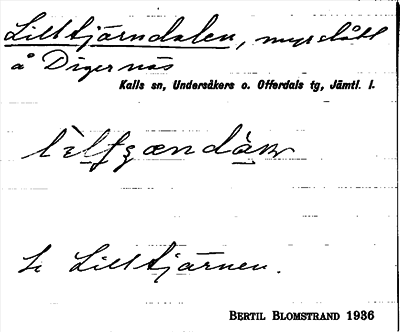 Lilltjärndalen, myrslått
å Digernäs
Kalls sn, Undersåkers o. Offerdals tg, Jämtl. l.
Lilltjärnen.
BERTIL BLOMSTRAND 1936